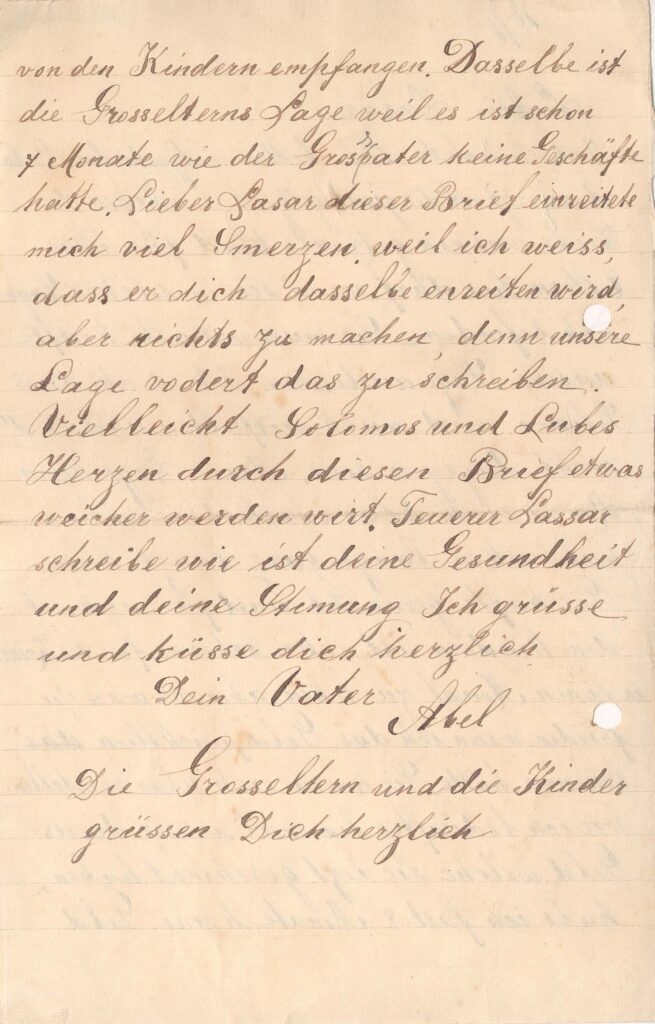 von den Kindern empfangen. Dasselbe ist
die Grosselterns Lage weil es ist schon
7 Monate wie der Grosvater keine Geschäfte
hatte. Lieber Lasar dieser Brief einreitete
mich viel Smerzen, weil ich weiss,
dass er dich dasselbe enreiten wird,
aber nichts zu machen, denn unsere
Lage vodert das zu schreiben.
Vielleicht Solomos und Lubes
Herzen durch diesen Brief etwas
weicher werden wirt. Teuerer Lassar
schreibe wie ist deine Gesundheit
und deine Stimung Ich grüsse
und küsse dich herzlich
Dein Vater
Abel
Die Grosseltern und die Kinder
grüssen Dich herzlich